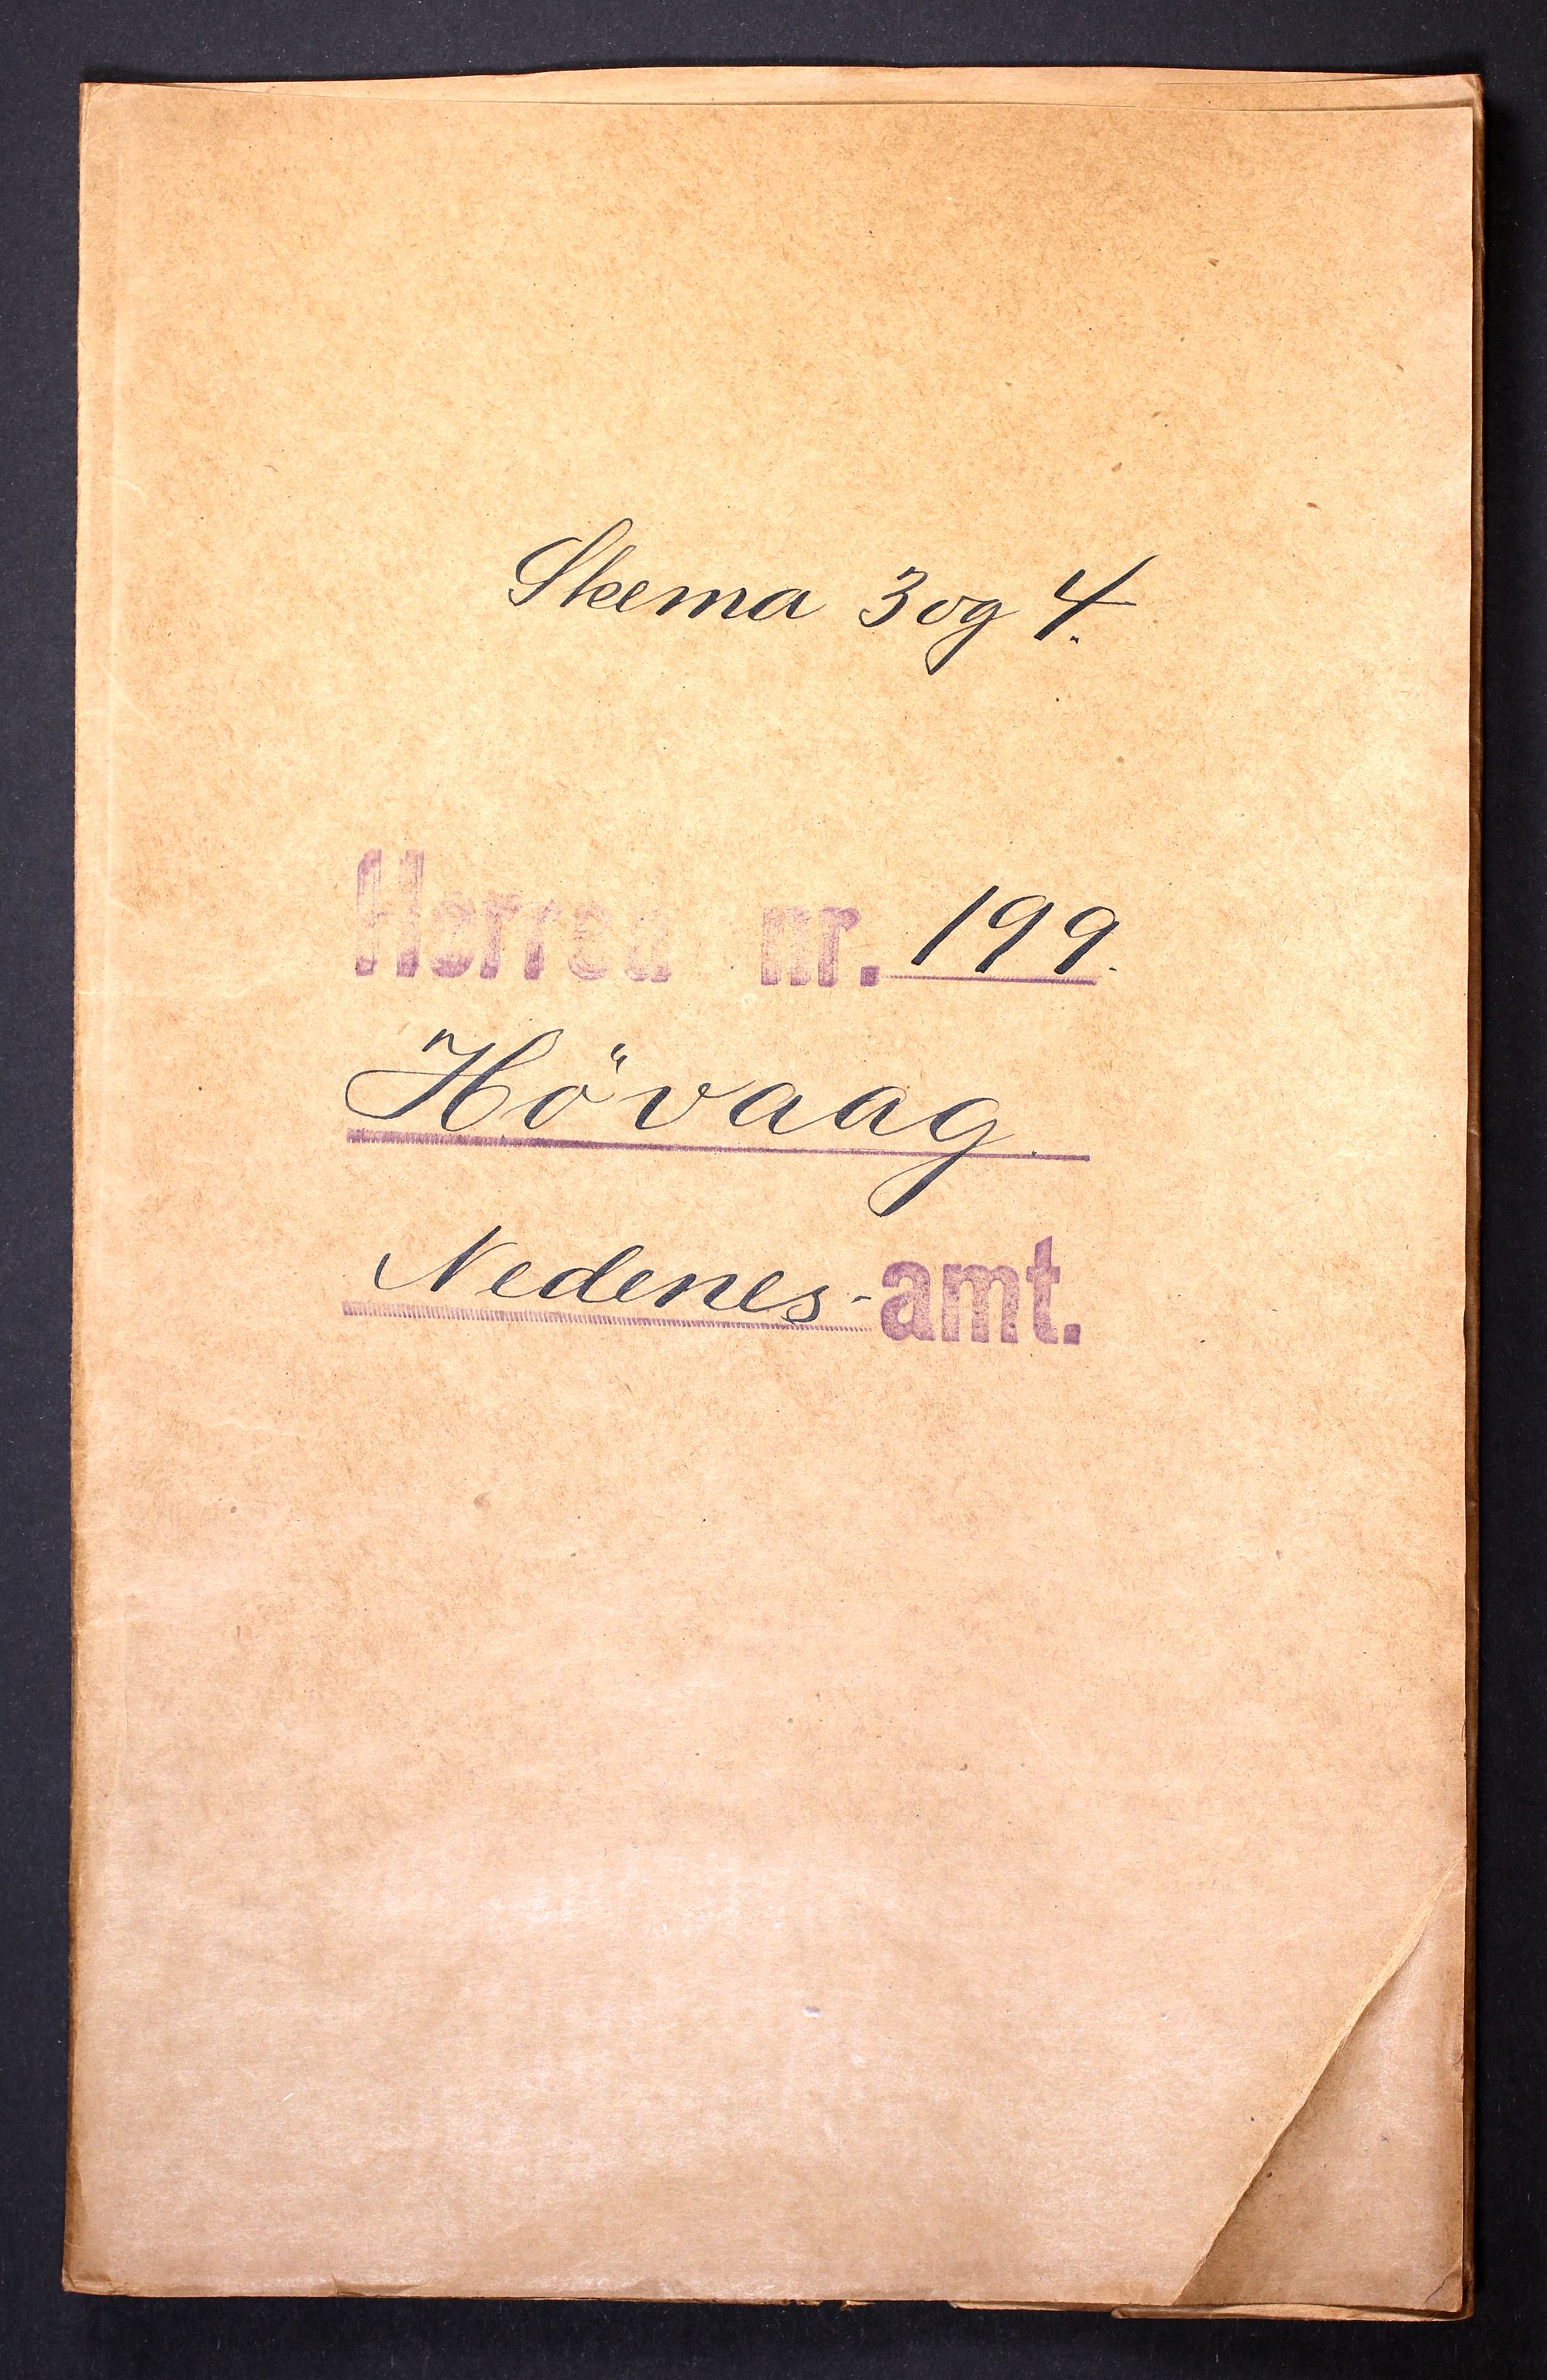 Skema 3 og 4.
Herred nr. 199.
Hövaag.
Nedenes-amt.